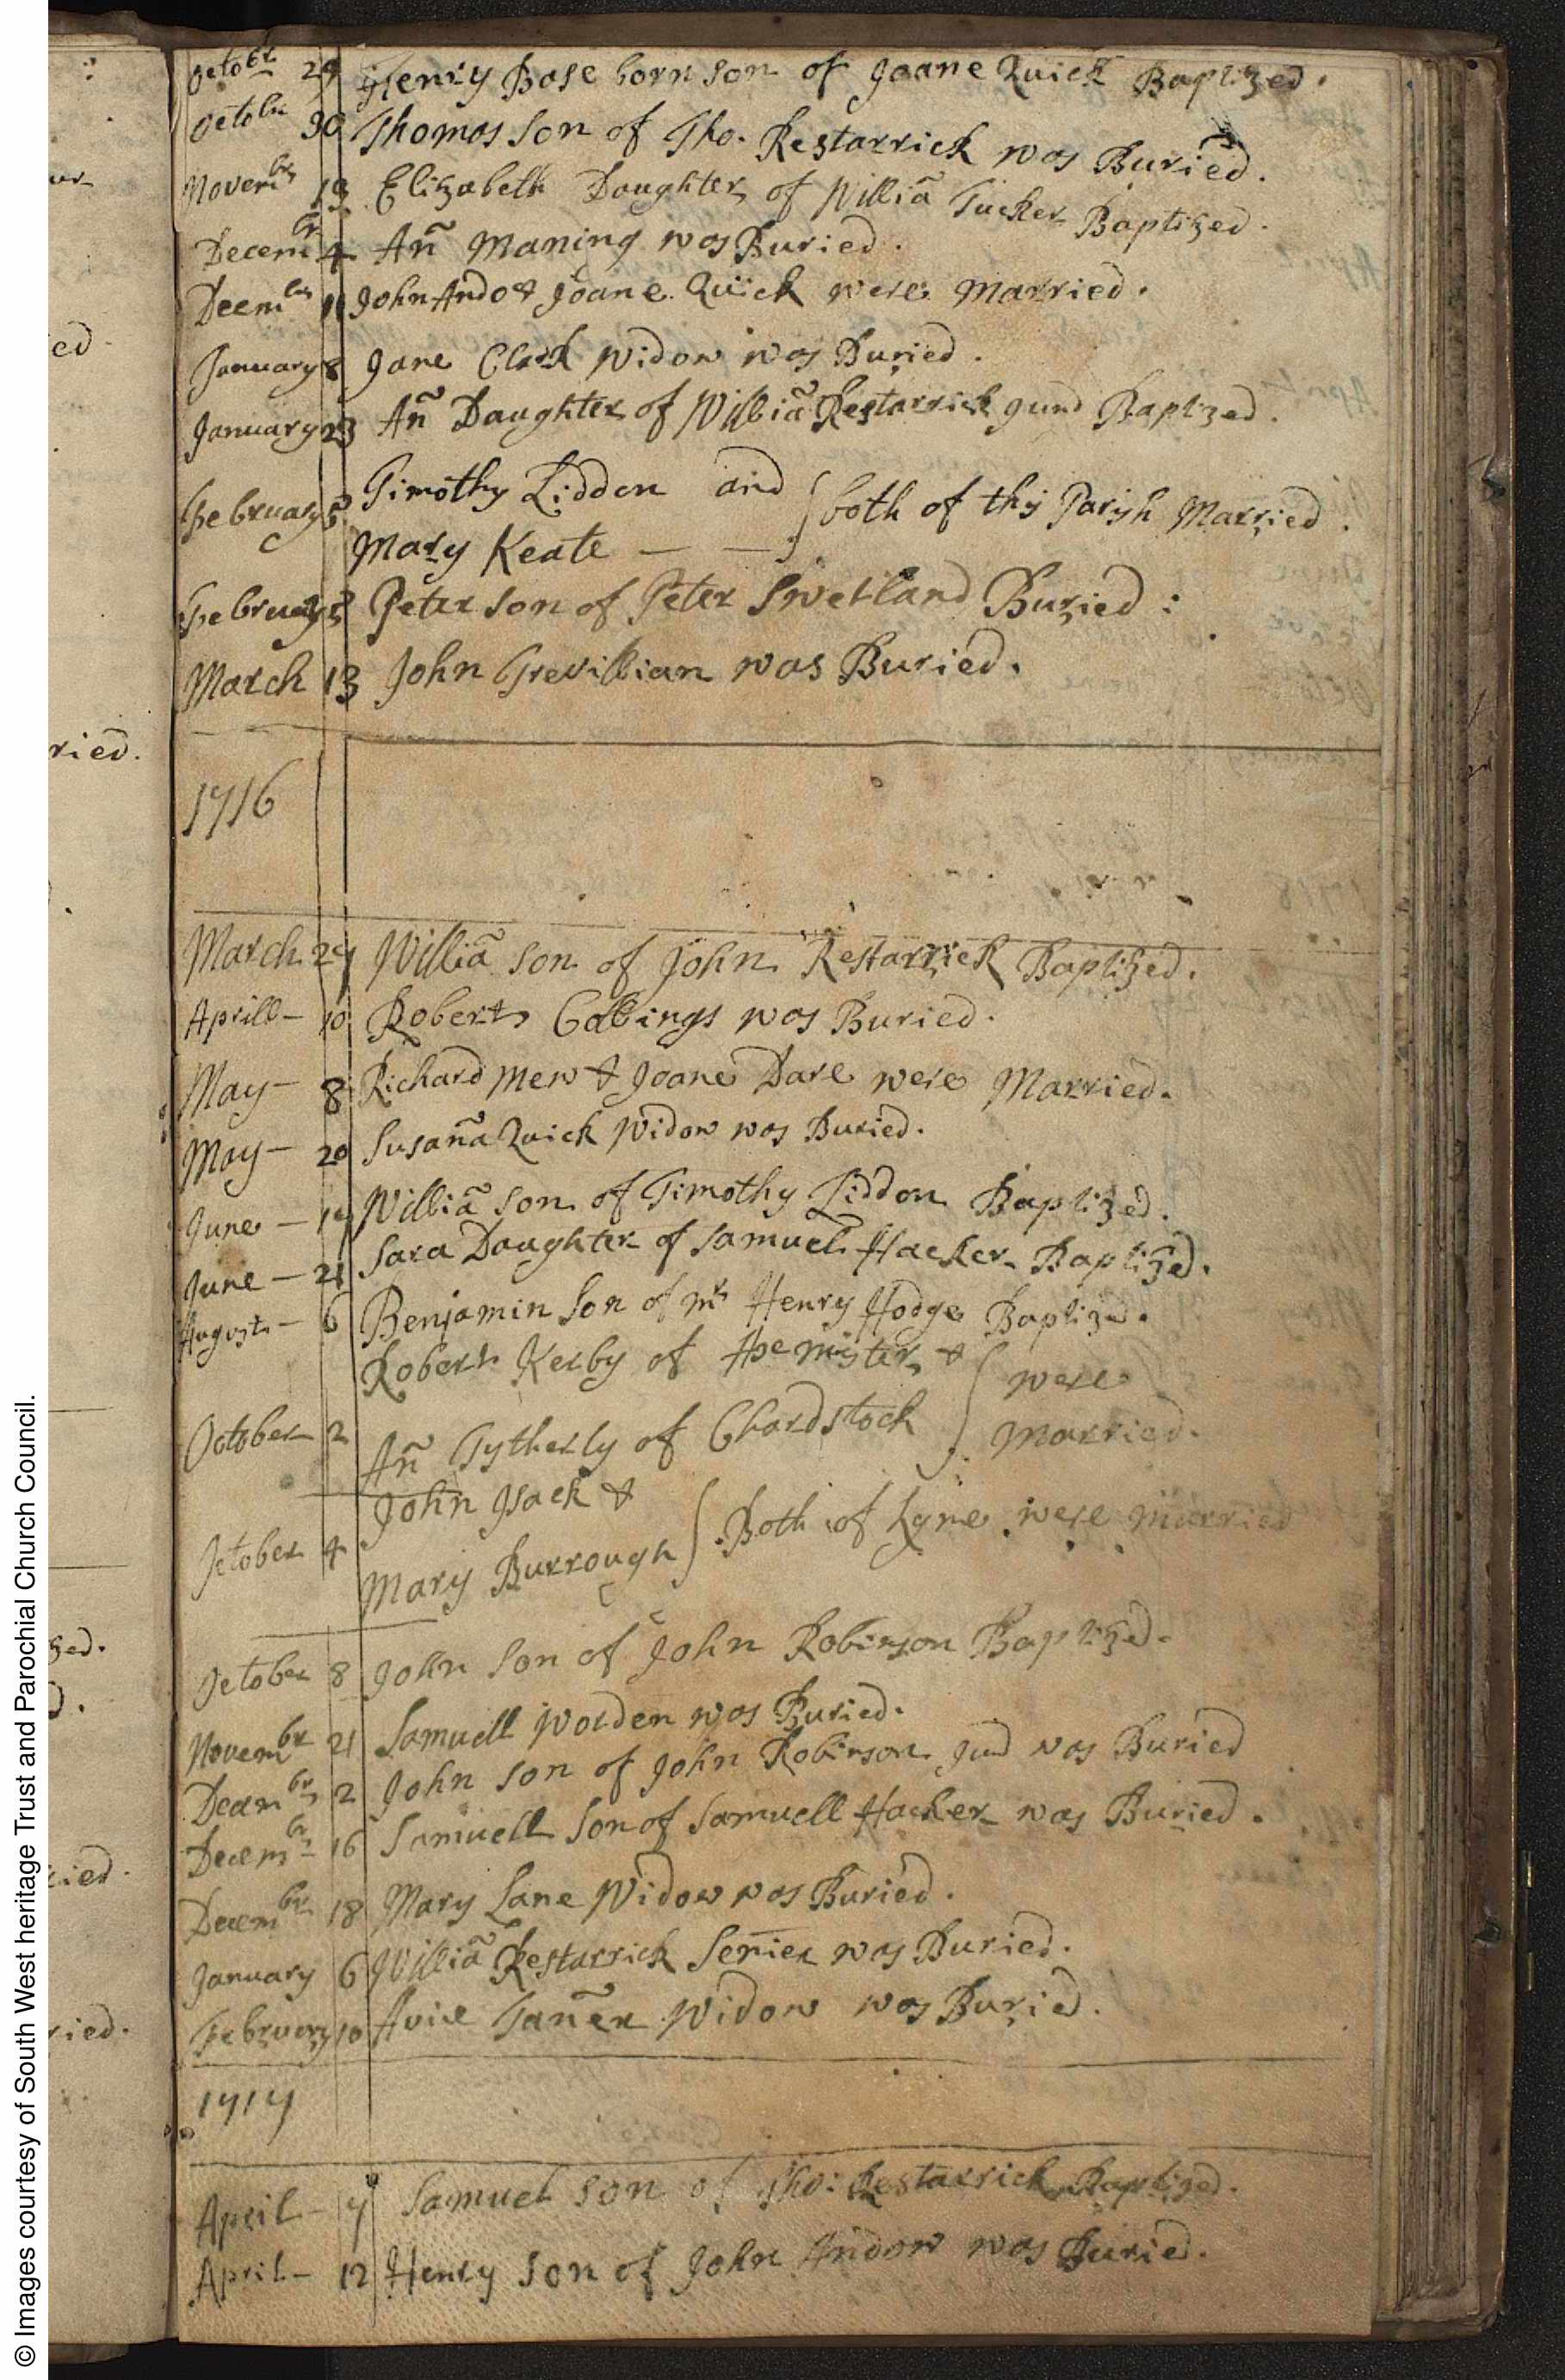 Octobr 29 Henry Base born son of Joane Quick Baptized.
Octobr 30 Thomas Son of Tho. Restarrick was Buried.
Novembr 13 Elizabeth Daughter of Williã Tucker Baptized.
Decembr 4 Añ Maning was Buried.
Decembr 11 John Ando & Joane Quick were Married.
January 8 Jane Clark Widow was Buried.
January 23 Añ Daughter of Williã Restarrick Baptized.
February 5 Timothy Liddon and
Mary Keate — — both of this Parish Married.
February Peter son of Peter Swetland Buried :
March 13 John Trevillian was Buried.
1716
March 27 Williã son of John Restarrick Baptized.
Aprill – 10 Robert Collings was Buried.
May – 8 Richard Mew & Joane Dare were Married.
May – 20 Susaña Quick Widow was Buried.
June – 17 Williã son of Timothy Liddon Baptized.
June – 21 Sara Daughter of Samuel Hacker Baptized.
August – 6 Benjamin Son of mr Henry Hodge Baptized.
Robert Kerby of Axe mister & were
October 2 Añ Tytherly of Chardstock Married.
John Isack &
October 4 Mary Burrough Both of Lyme were Married
October 8 John Son of John Robinson Baptized.
Novembr 21 Samuell Worden was Buried.
Decembr 2 John son of John Robinson was Buried
Decembr 16 Samuell Son of Samuell Hacker was Buried.
Decembr 18 Mary Lane Widow was Buried.
January 6 Williã Restarrick Senier was Buried.
February 10 Avice Tañer Widow was Buried.
1717
April – 7 Samuel Son of Tho: Restarrick Baptized.
April – 12 Henry Son of John Andow was Buried.
ed
ried.
zed.
ried.
ried.
© Images courtesy of South West heritage Trust and Parochial Church Council.